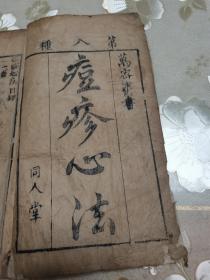 第八種
萬密齋書
痘疹心法
同人堂